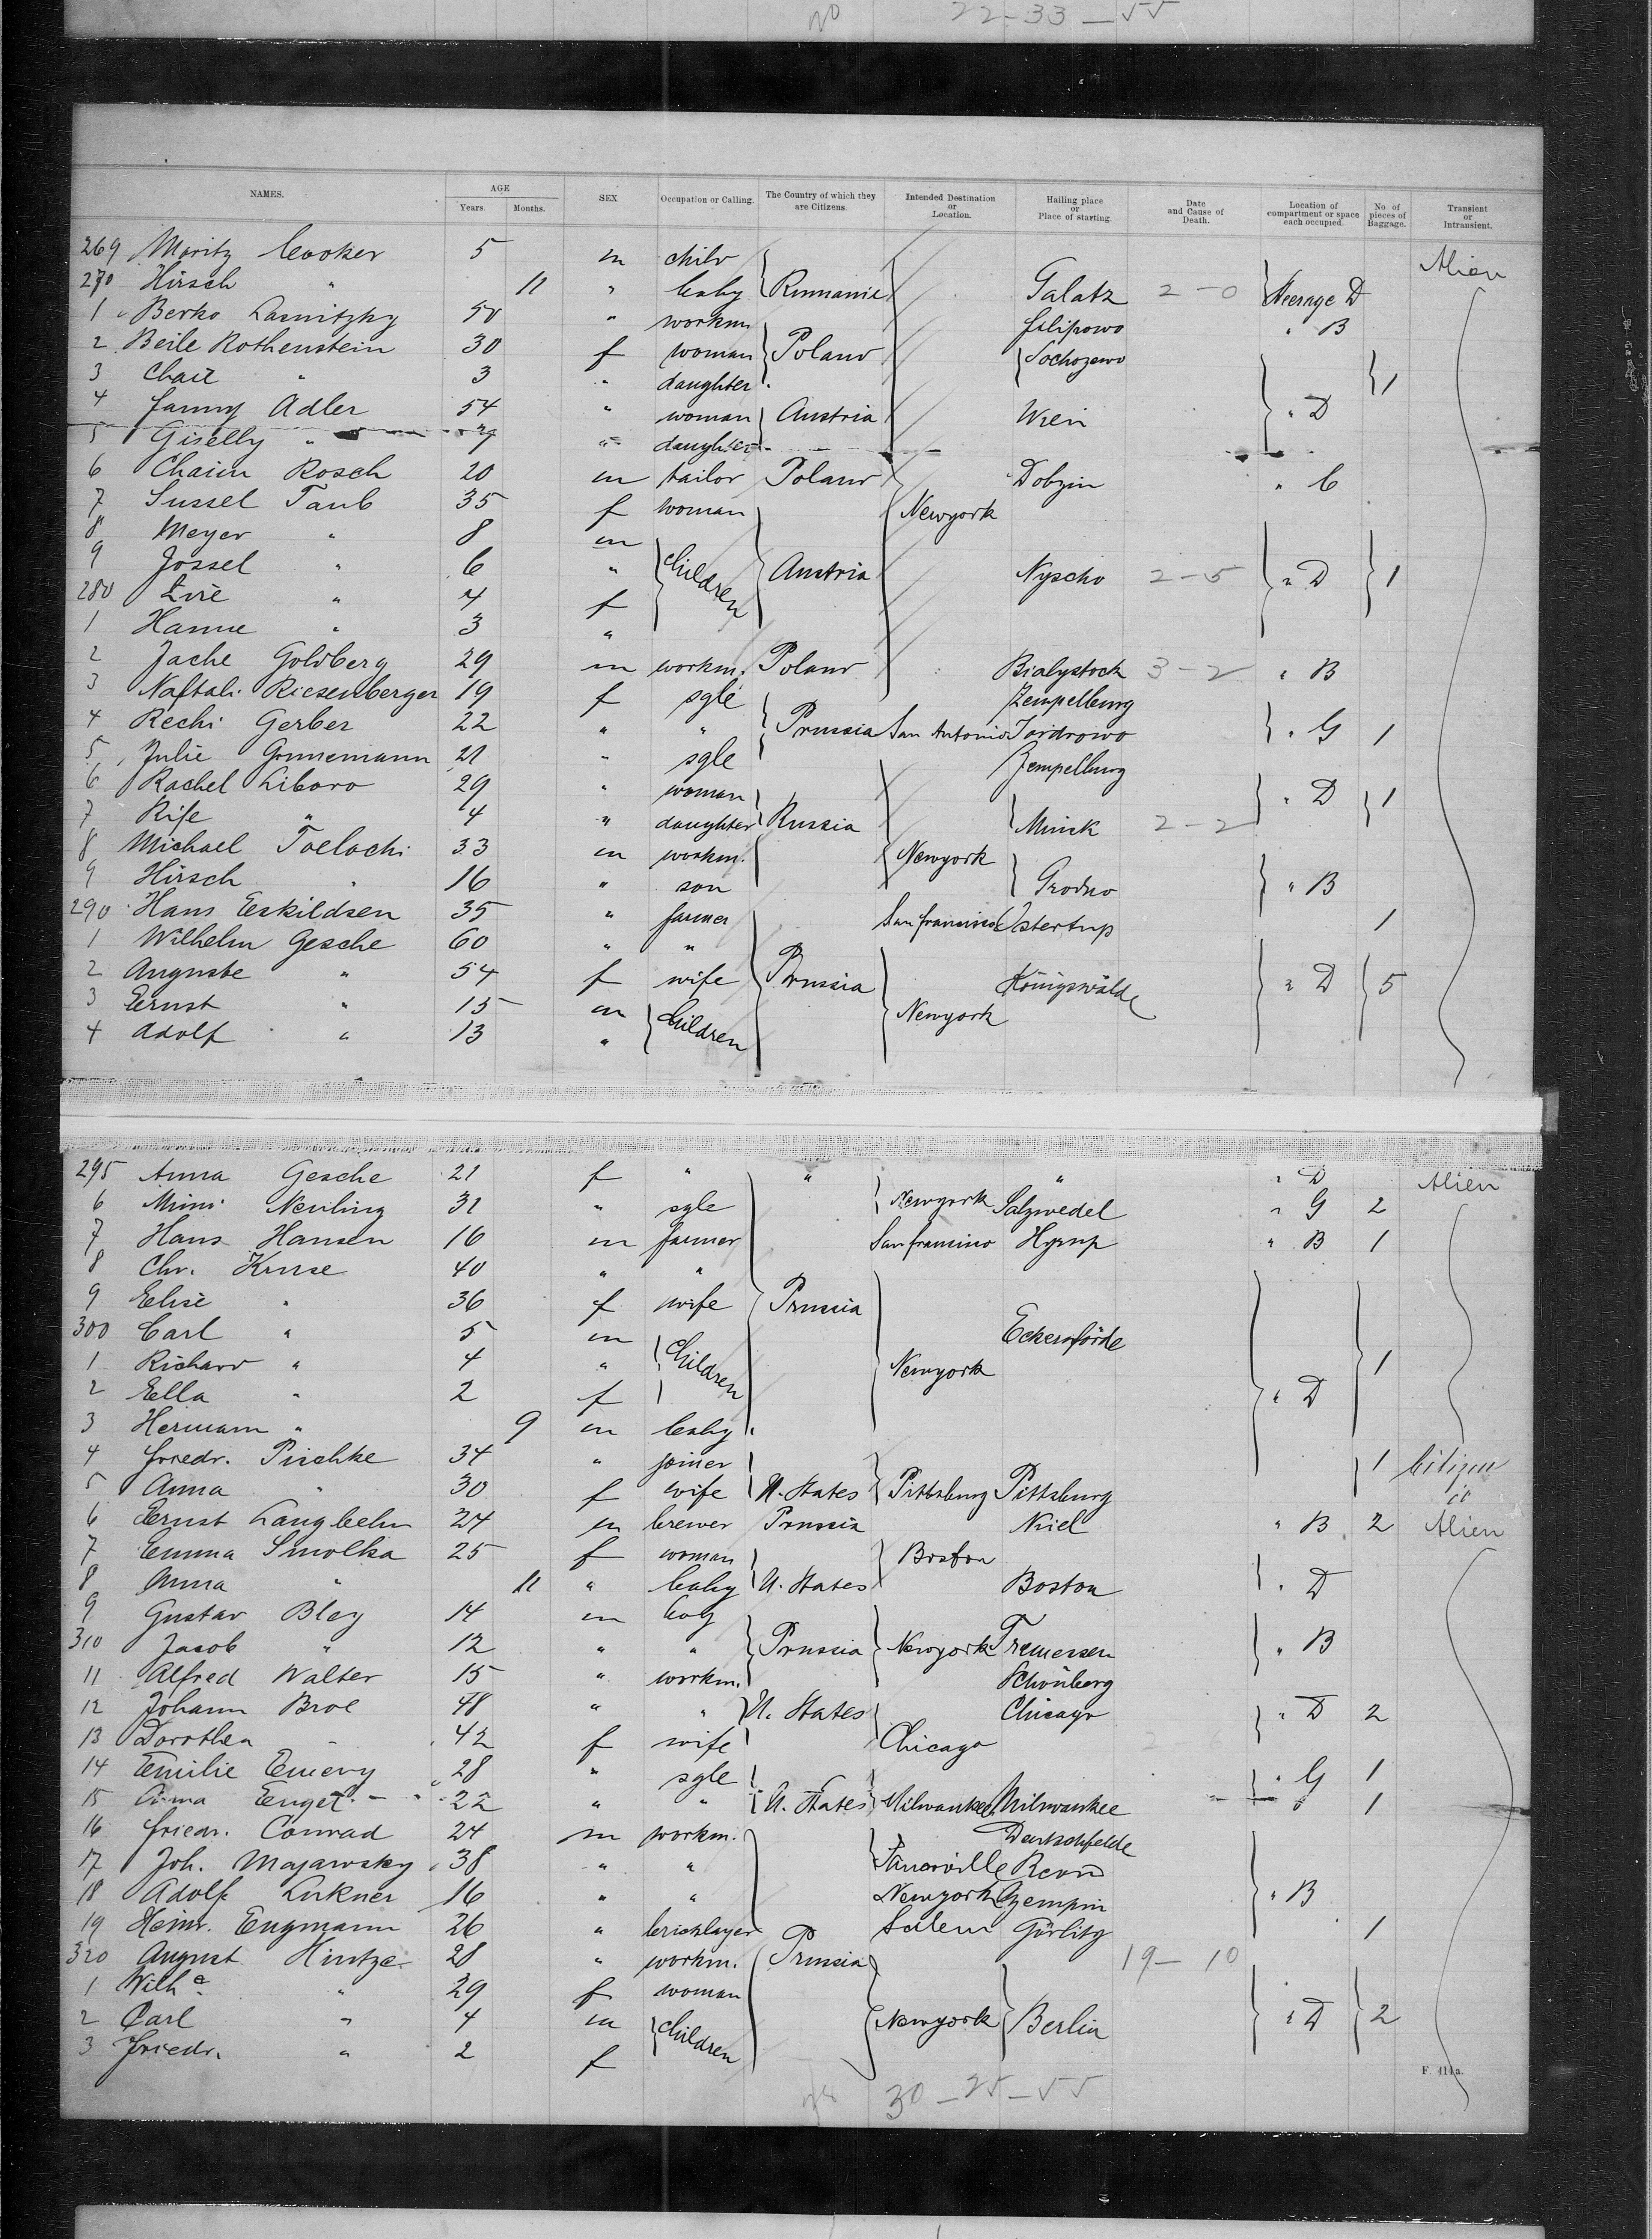 No 22-33-55
NAMES. AGE Years. Months. SEX Occupation or Calling. The Country of which they are Citizens. Intended Destination or Location. Hailing place or Place of starting. Date and Cause of Death. Location of compartment or space each occupied. No. of pieces of Baggage. Transient or Intransient.
269 Moritz Cooker 5 m child Alien
270 Hirsch " 11 " baby Rumania Galatz 2-0 Steerage D
1 Berko Lasnitzky 50 " workm. Filipowo " B
2 Beile Rothenstein 30 f woman Poland Sochozewo
3 Chaie " 3 " daughter 1
4 Fanny Adler 54 " woman Austria Wien " D
5 Giselly " " daughter
6 Chaim Rosch 20 m tailor Poland Dobzin " C
7 Sussel Taub 35 f woman Newyork
8 Meyer " 8 m
9 Jossel " 6 " Children Austria Nyscho 2-5 " D 1
280 Livie " 4 f
1 Hanne " 3 "
2 Jache Goldberg 29 m workm. Poland Bialystock 3-2 " B
3 Naftali Riesenberger 19 f sgle Zempelburg
4 Rechi Gerber 22 " " Prussia San Antonio Tordrowo " G 1
5 Julie Grunemann 21 " sgle Zempelburg
6 Rachel Liboro 29 " woman " D 1
7 Rife " 4 " daughter Russia Minsk 2-2
8 Michael Toelochi 33 m workm. Newyork
9 Hirsch " 16 " son Grodno " B
290 Hans Eskildsen 35 " farmer San francisco Ostertup 1
1 Wilhelm Gesche 60 " "
2 Auguste " 54 f wife Prussia Königswälde " D 5
3 Ernst " 15 m Newyork
4 Adolf " 13 " Children
295 Anna Gesche 21 f " " " " D Alien
6 Mimi Neuling 31 " sgle Newyork Salzwedel " G 2
7 Hans Hansen 16 m farmer San francisco Hyrup " B 1
8 Chr. Kruse 40 " "
9 Elise " 36 f wife Prussia
300 Carl " 5 m Eckernförde
1 Richard " 4 " Children Newyork 1
2 Ella " 2 f " D
3 Hermann " 9 m baby
4 Friedr. Pischke 34 " joiner 1 Citizen
5 Anna " 30 f wife U. States Pittsburg Pittsburg "
6 Ernst Langbehn 24 m brewer Prussia Kiel " B 2 Alien
7 Emma Smolka 25 f woman Boston
8 Anna " 11 " baby U. States Boston " D
9 Gustav Bley 14 m boy
310 Jacob " 12 " " Prussia Newyork Tremessen " B
11 Alfred Walter 15 " workm. Schönberg
12 Johann Broe 48 " " U. States Chicago " D 2
13 Dorothea " 42 f wife Chicago 2
14 Emilie Emery 28 " sgle " G 1
15 Anna Engel 22 " " U. States Milwaukee Milwaukee 1
16 Friedr. Conrad 24 m workm. Deutschfelde
17 Joh. Majawsky 38 " "
18 Adolf Lirkner 16 " " Newyork Czempin " B
19 Heinr. Engmann 26 " bricklayer Salem Görlitz 1
320 August Hintze 28 " workm. Prussia 19-10
1 Wilhe " 29 f woman
2 Carl " 4 m Children Newyork Berlin " D 2
3 Friedr. " 2 f
F. 414a.
30-25-55